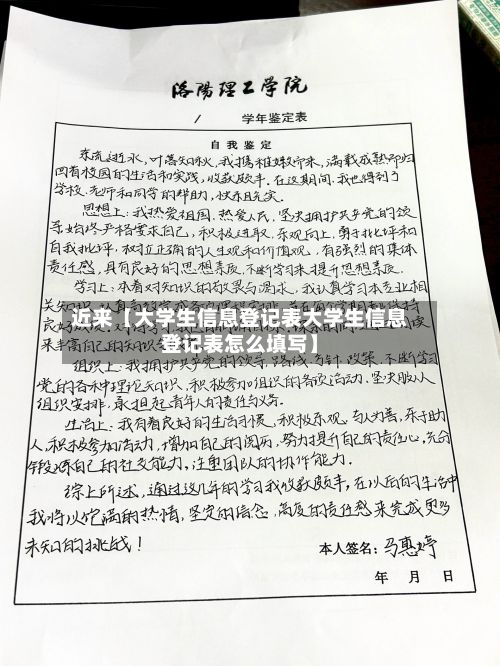 洛阳理工学院
/ 学年鉴定表
自我鉴定
东流逝水，叶落知秋，我携稚嫩而来，满载成熟而归
回首校园的生活和实践，收获颇丰，在这期间，我也得到了
学校、老师和同学的帮助，快乐且充实。
思想上：我热爱祖国，热爱人民，坚决拥护共产党的领
导始终严格要求自己，积极进取，乐观向上，勇于批评和
自我批评，树立正确的人生观和价值观，有强烈的集体
责任感，具有良好的思想素质，不断学习来提升思想素质。
学习上：本着对知识的渴求，我认真学习本专业相
关知识
近来【大学生信息登记表大学生信息
登记表怎么填写】
来丰富自己的知识
组织上：我拥护共产党的领导、路线、方针、政策，不断学习
党的各种理论知识，积极参加组织的各项活动，坚决服从
组织安排，承担起青年人的责任与义务。
生活上：我有着良好的生活习惯，积极乐观，与人为善，乐于助
人，积极参加活动，增加自己的阅历，努力提升自己的责任心，充分
锻炼自己的社交能力，注重团队的协作能力。
综上所述，通过这几年的学习我收获颇丰，在以后的生活中
我将以饱满的热情，坚定的信念，高度的责任感来完成更多
未知的挑战！
本人签名：马惠婷
年 月 日